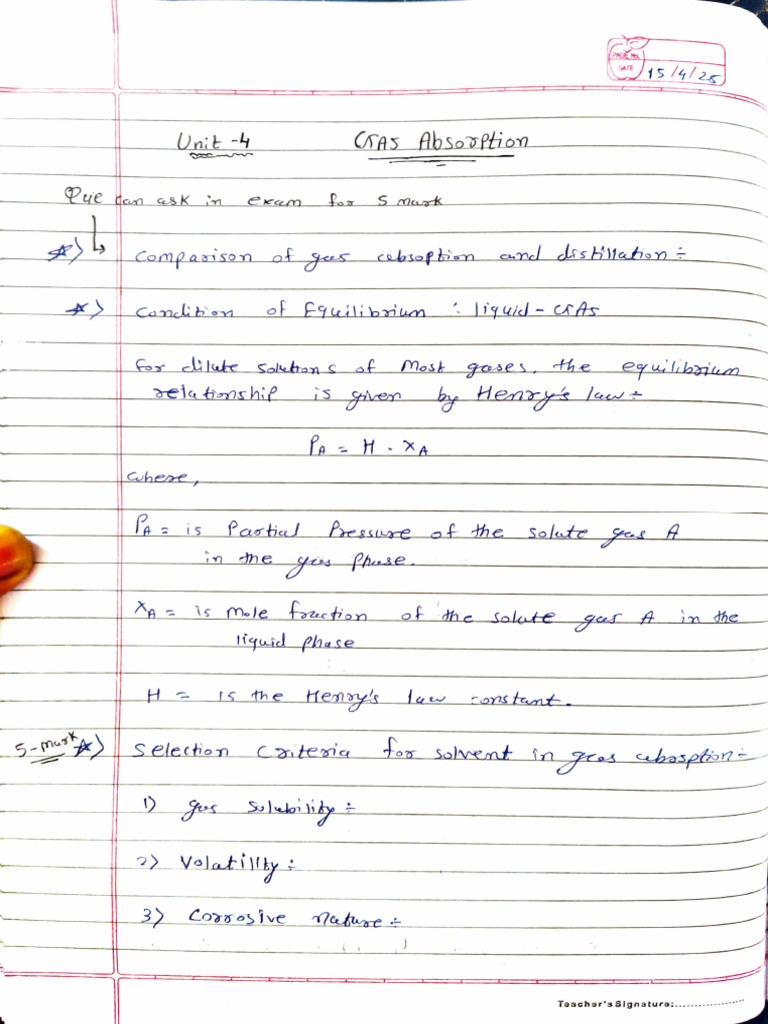 PAGE No.
DATE 15/4/25
Unit-4 GAS Absorption
Que can ask in exam for 5 mark
Comparison of gas cabsoption and distillation÷
Condition of Equilibrium : liquid-GAs
For dilute solutions of Most gases, the equilibrium
relationship is given by Henry's law÷
PA = H . XA
where,
PA = is Partial Pressure of the solute gas A
in the gas Phase.
XA = is mole fraction of the solute gas A in the
liquid phase
H = is the Henry's law constant.
5-mark Selection Criteria for solvent in gas cabosption÷
1) gas solubility÷
2) Volatility÷
3) Corrosive nature÷
Teacher's Signature: